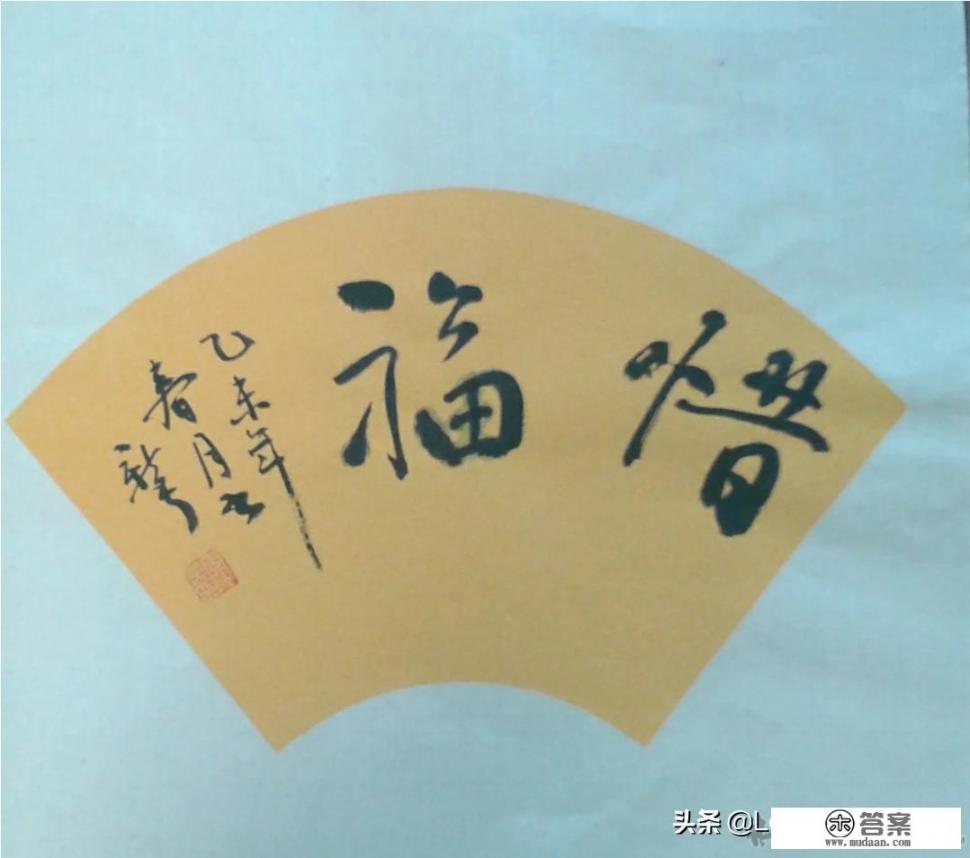 惜福
乙未年
春月书
头条 @L
答案
www.mudaan.com